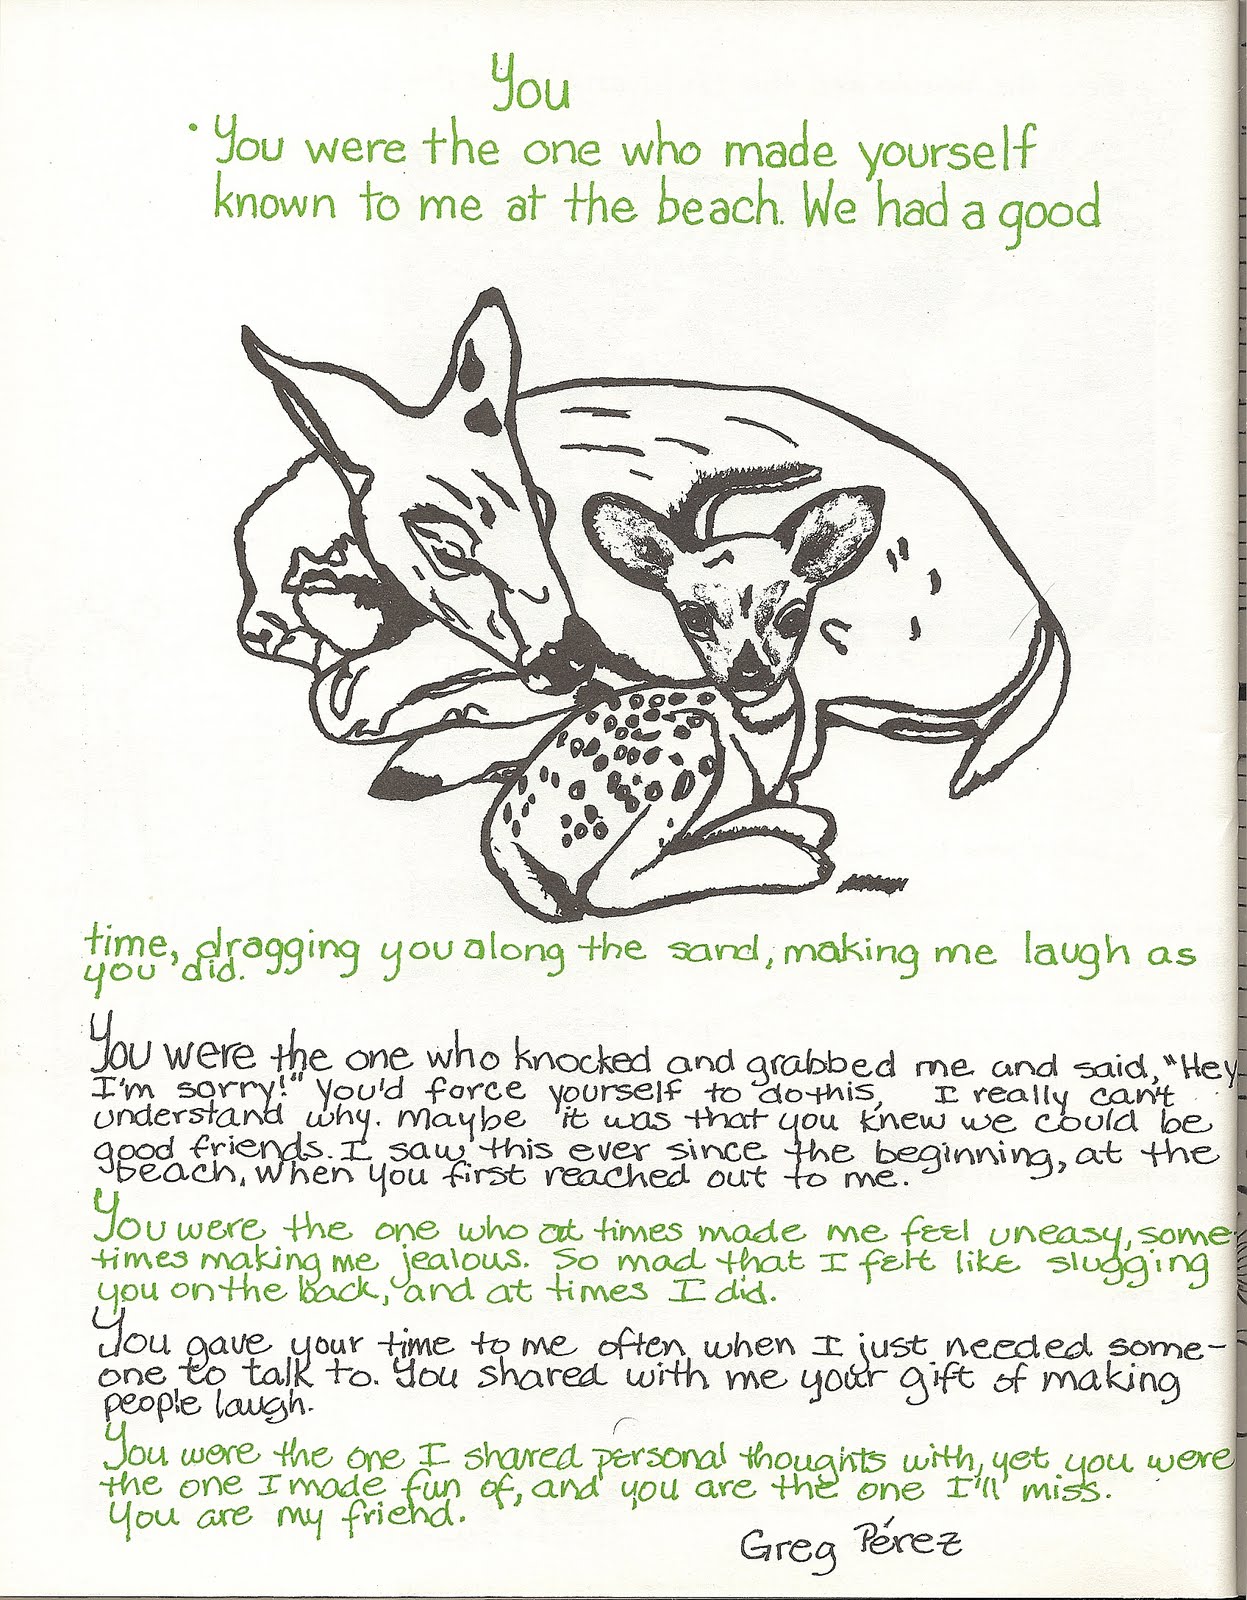 You
You were the one who made yourself
known to me at the beach. We had a good
time, dragging you along the sand, making me laugh as
you did.
You were the one who knocked and grabbed me and said, "Hey
I'm sorry!" You'd force yourself to do this, I really can't
understand why. Maybe it was that you knew we could be
good friends. I saw this ever since the beginning, at the
beach, when you first reached out to me.
You were the one who at times made me feel uneasy, some-
times making me jealous. So mad that I felt like slugging
you on the back, and at times I did.
You gave your time to me often when I just needed some-
one to talk to. You shared with me your gift of making
people laugh.
You were the one I shared personal thoughts with, yet you were
the one I made fun of, and you are the one I'll miss.
You are my friend.
Greg Pérez